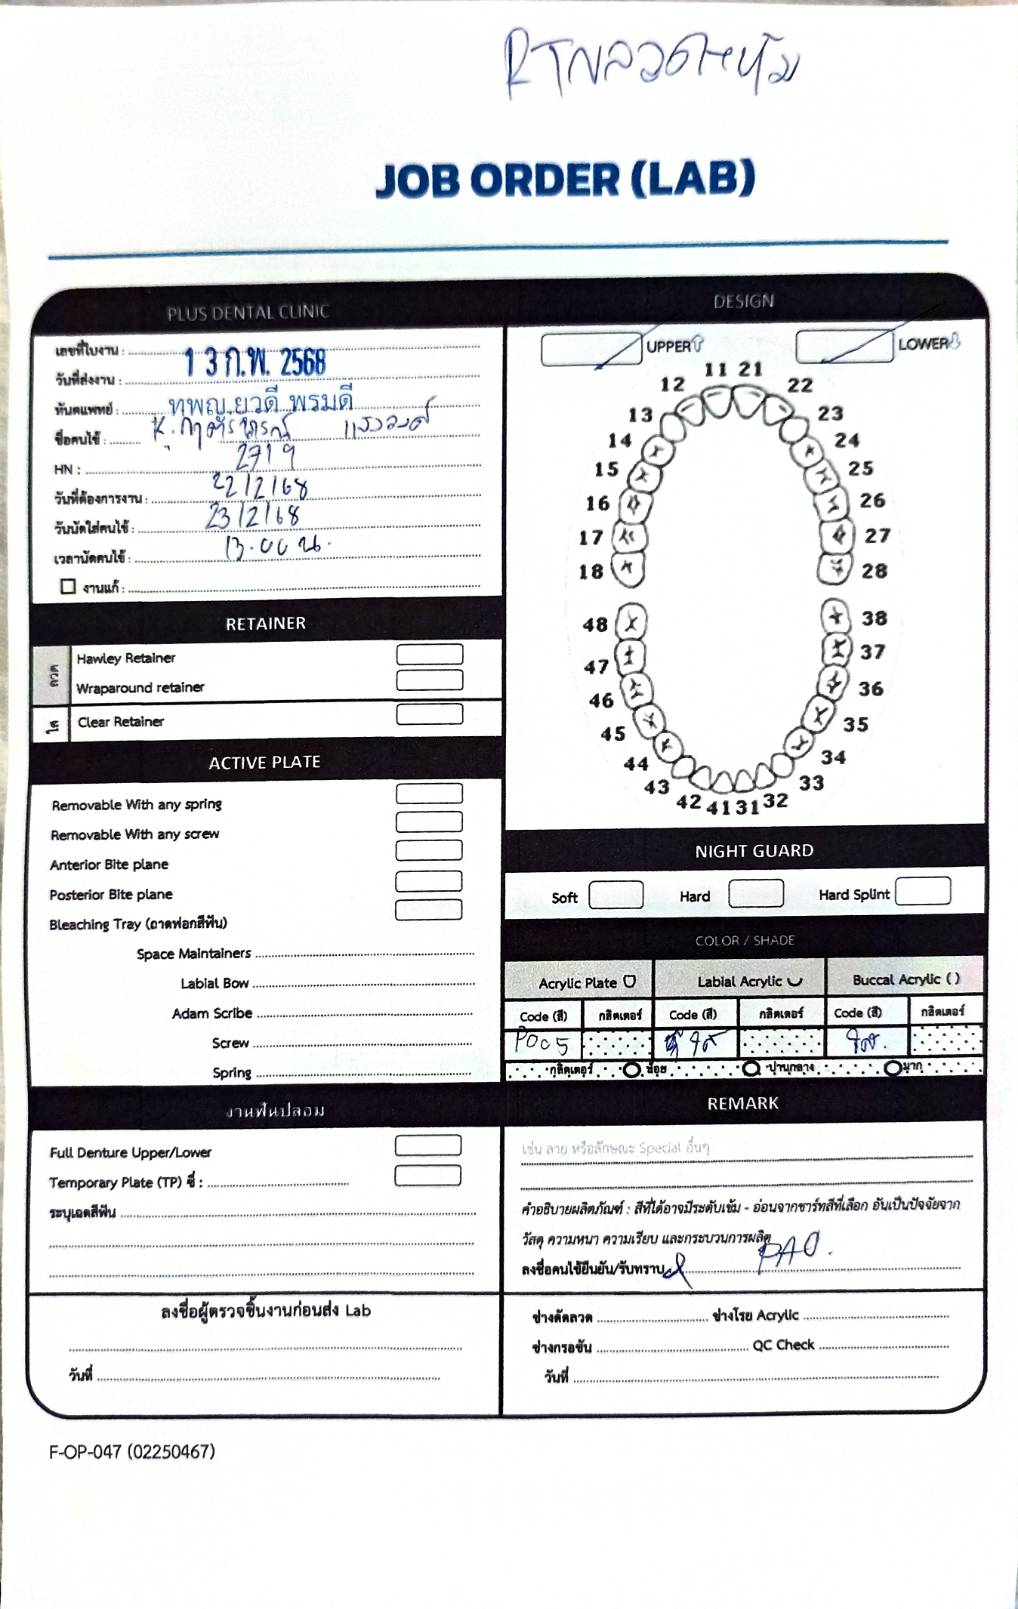 RTNลวดหุ้ม
JOB ORDER (LAB)
PLUS DENTAL CLINIC
เลขที่ใบงาน :
วันที่ส่งงาน : 13 ก.พ. 2568
ทันตแพทย์ : ทพญ.ยวดี พรมดี
ชื่อคนไข้ : K.
HN : 2719
วันที่ต้องการงาน : 22/2/68
วันนัดใส่คนไข้ : 23/2/68
เวลานัดคนไข้ : 13.00 น.
งานแก้ :
RETAINER
ลวด
Hawley Retainer
Wraparound retainer
ใส
Clear Retainer
ACTIVE PLATE
Removable With any spring
Removable With any screw
Anterior Bite plane
Posterior Bite plane
Bleaching Tray (ถาดฟอกสีฟัน)
Space Maintainers
Labial Bow
Adam Scribe
Screw
Spring
งานฟันปลอม
Full Denture Upper/Lower
Temporary Plate (TP) ซี่ :
ระบุเฉดสีฟัน
ลงชื่อผู้ตรวจชิ้นงานก่อนส่ง Lab
วันที่
DESIGN
UPPER LOWER
11 21
12 22
13 23
14 24
15 25
16 26
17 27
18 28
48 38
47 37
46 36
45 35
44 34
43 33
42 41 31 32
NIGHT GUARD
Soft Hard Hard Splint
COLOR / SHADE
Acrylic Plate Labial Acrylic Buccal Acrylic ( )
Code (สี) กลิตเตอร์ Code (สี) กลิตเตอร์ Code (สี) กลิตเตอร์
P005 ใส ใส
กลิตเตอร์ น้อย ปานกลาง มาก
REMARK
เช่น ลาย หรือลักษณะ Special อื่นๆ
คำอธิบายผลิตภัณฑ์ : สีที่ได้อาจมีระดับเข้ม - อ่อนจากชาร์ทสีที่เลือก อันเป็นปัจจัยจาก
วัสดุ ความหนา ความเรียบ และกระบวนการผลิต
ลงชื่อคนไข้ยืนยัน/รับทราบ PAO.
ช่างดัดลวด ช่างโรย Acrylic
ช่างกรอขัน QC Check
วันที่
F-OP-047 (02250467)